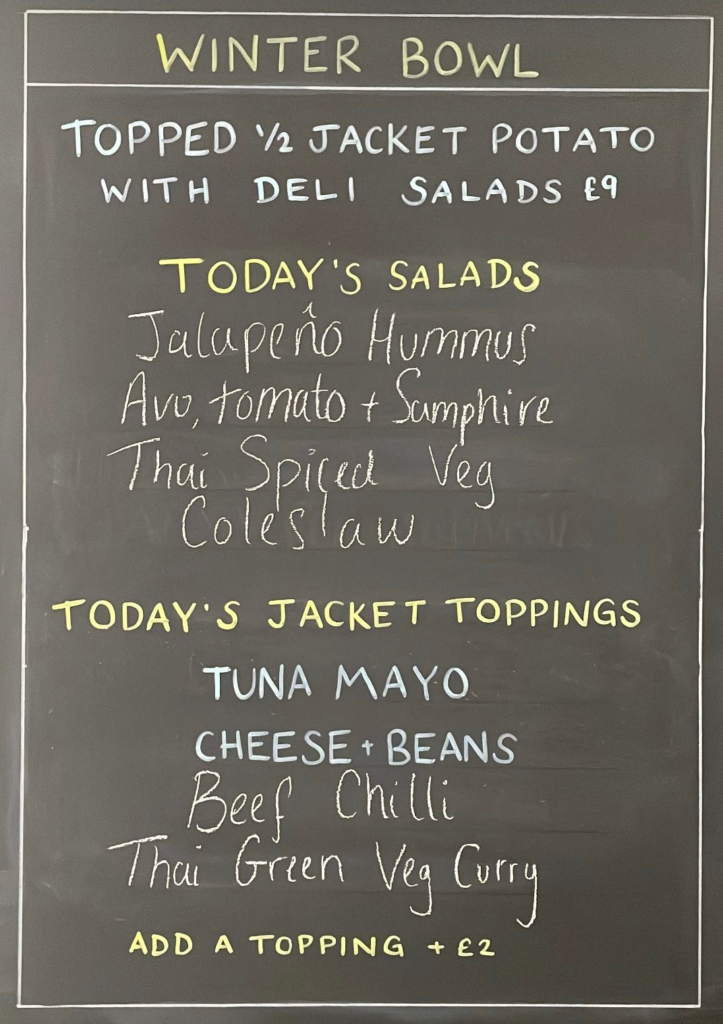 WINTER BOWL
TOPPED 1/2 JACKET POTATO
WITH DELI SALADS £9
TODAY'S SALADS
Jalapeño Hummus
Avo, tomato + Samphire
Thai Spiced Veg
Coleslaw
TODAY'S JACKET TOPPINGS
TUNA MAYO
CHEESE + BEANS
Beef Chilli
Thai Green Veg Curry
ADD A TOPPING + £2